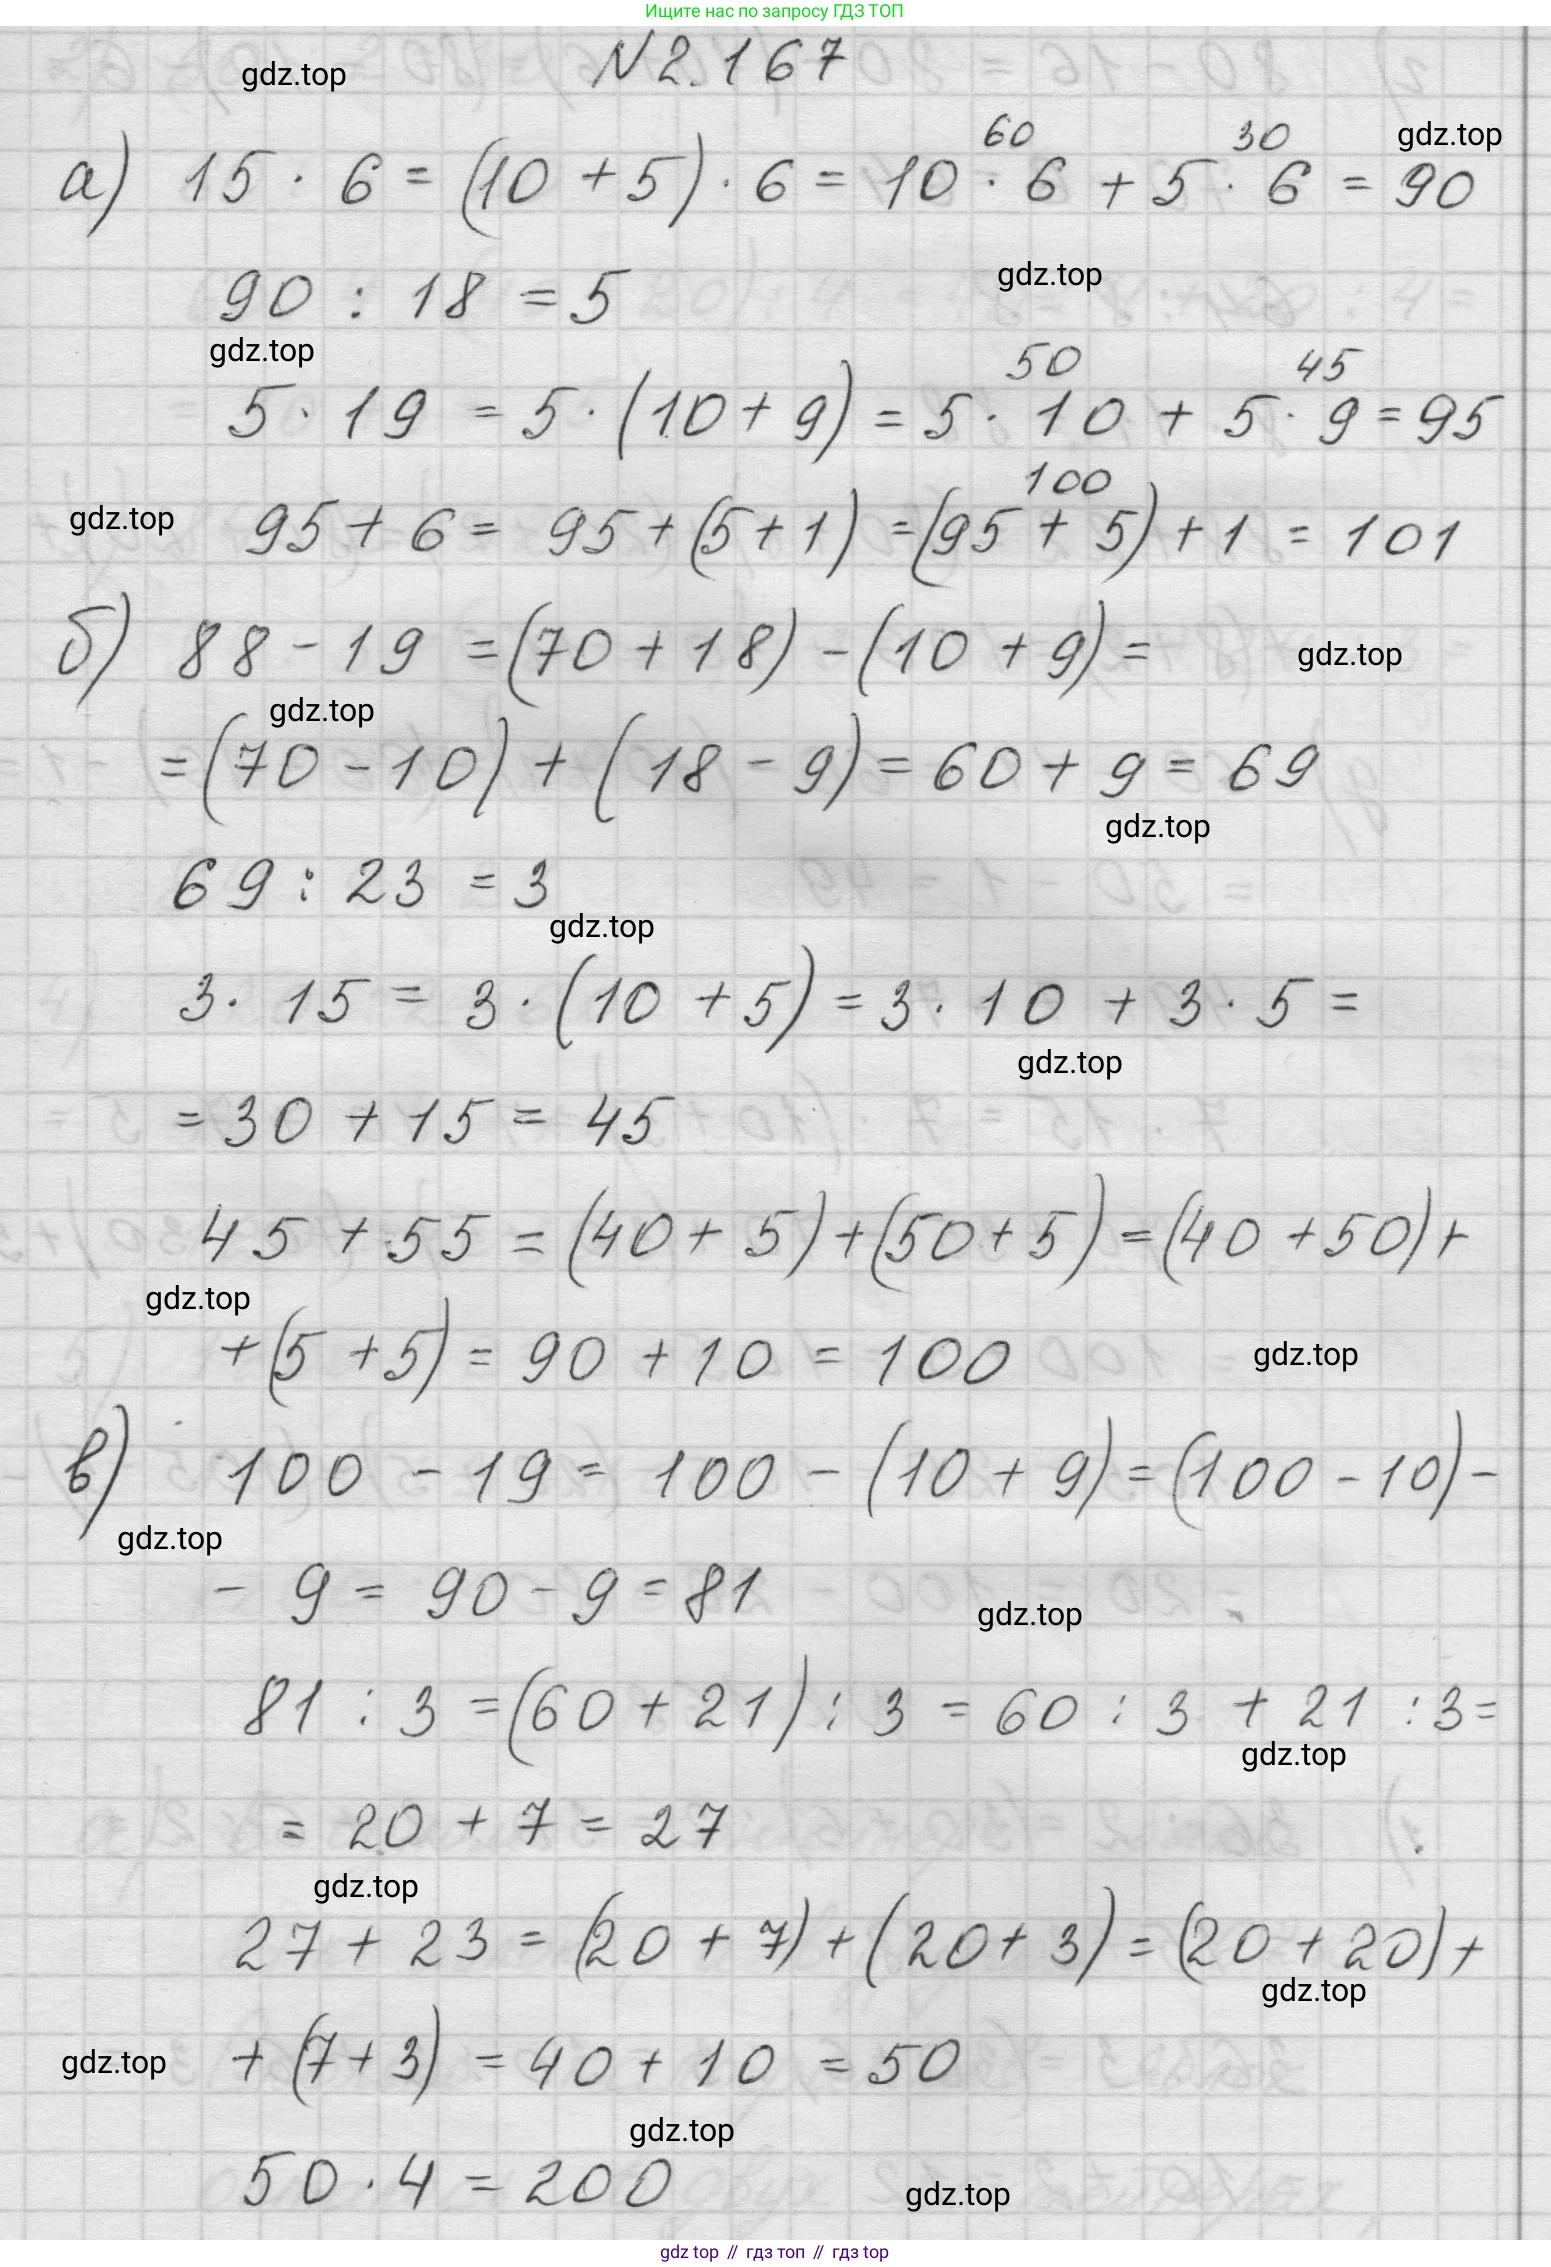 Ищите нас по запросу ГДЗ ТОП
№ 2.167
gdz.top
60 30
gdz.top
а) 15 · 6 = (10 + 5) · 6 = 10 · 6 + 5 · 6 = 90
90 : 18 = 5
gdz.top
gdz.top
50 45
5 · 19 = 5 · (10 + 9) = 5 · 10 + 5 · 9 = 95
100
gdz.top
95 + 6 = 95 + (5 + 1) = (95 + 5) + 1 = 101
б) 88 - 19 = (70 + 18) - (10 + 9) =
gdz.top
gdz.top
= (70 - 10) + (18 - 9) = 60 + 9 = 69
gdz.top
69 : 23 = 3
gdz.top
3 · 15 = 3 · (10 + 5) = 3 · 10 + 3 · 5 =
gdz.top
= 30 + 15 = 45
45 + 55 = (40 + 5) + (50 + 5) = (40 + 50) +
gdz.top
+ (5 + 5) = 90 + 10 = 100
gdz.top
в) 100 - 19 = 100 - (10 + 9) = (100 - 10) -
gdz.top
- 9 = 90 - 9 = 81
gdz.top
81 : 3 = (60 + 21) : 3 = 60 : 3 + 21 : 3 =
gdz.top
= 20 + 7 = 27
gdz.top
27 + 23 = (20 + 7) + (20 + 3) = (20 + 20) +
gdz.top
gdz.top
+ (7 + 3) = 40 + 10 = 50
gdz.top
50 · 4 = 200
gdz.top
gdz top // гдз топ // гдз top